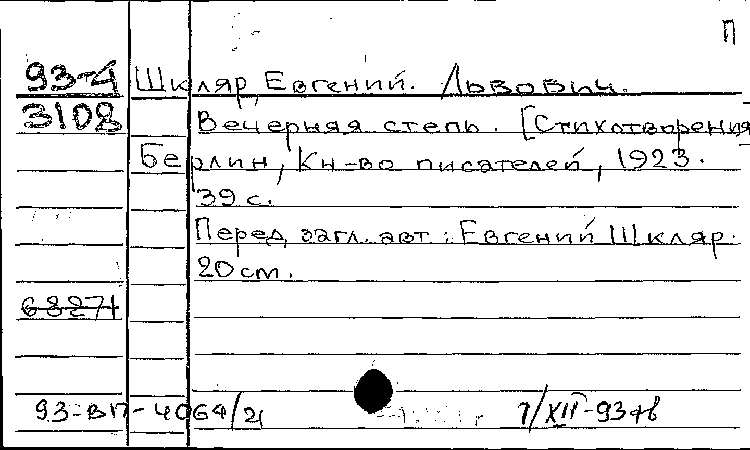 П
93-4 Шкляр, Евгений. Львович.
3108 Вечерняя степь. [Стихотворения]
Берлин, Кн-во писателей, 1923.
39 с.
Перед загл. авт.: Евгений Шкляр.
20 см.
68271
93-ВП-4064/21 7/XII-93